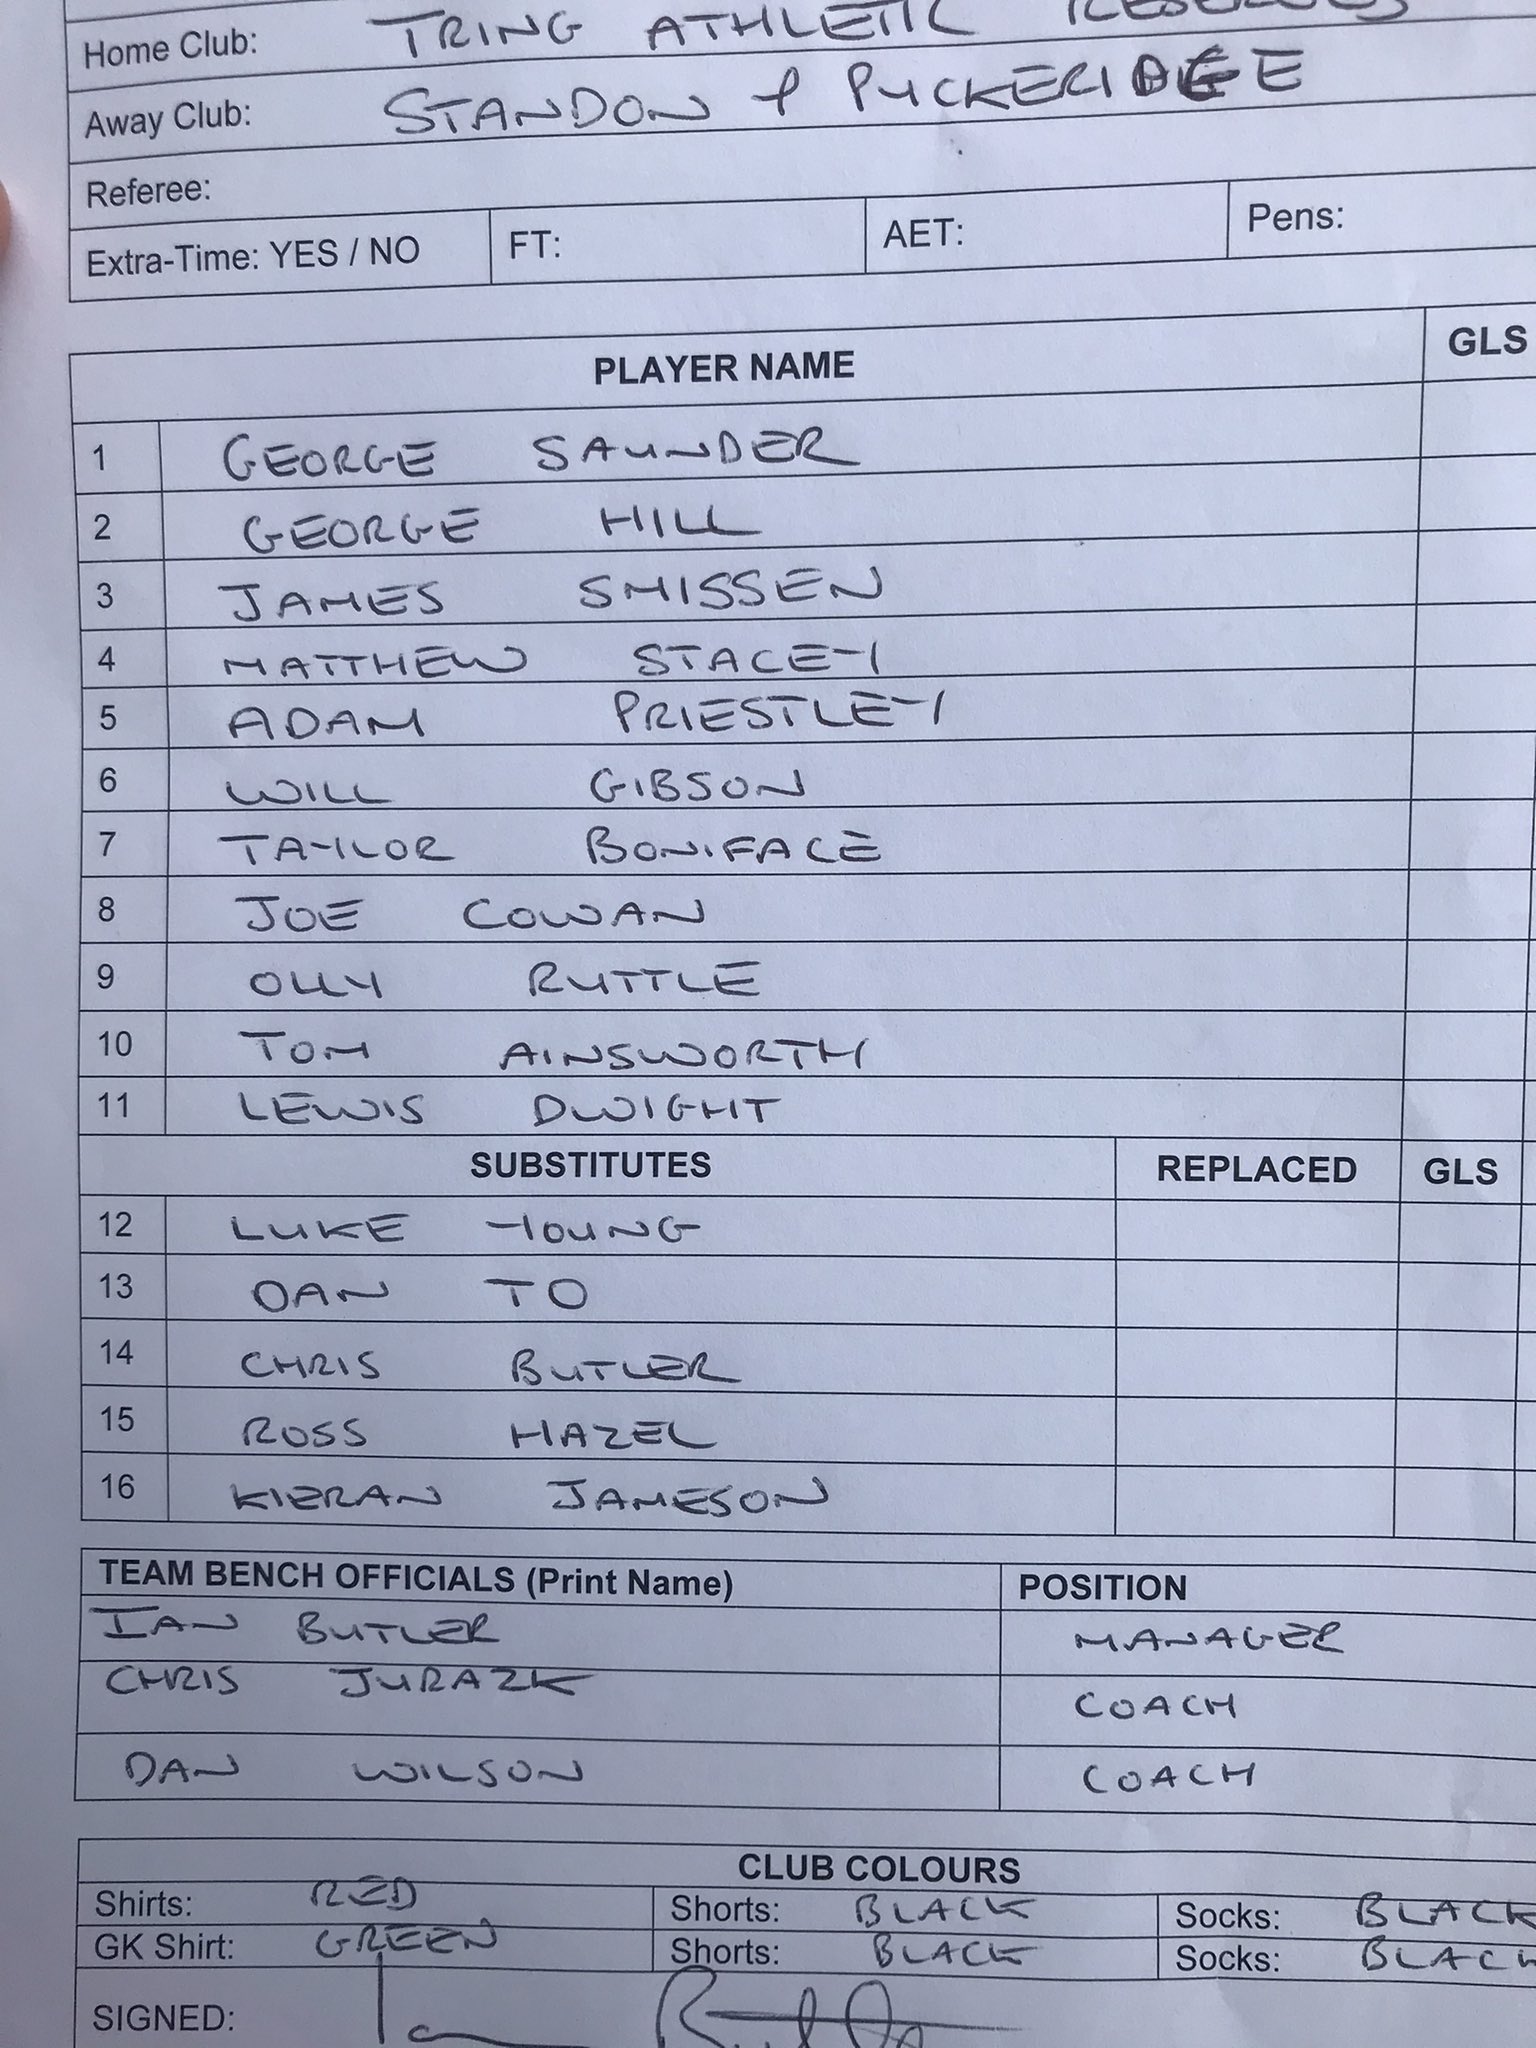 Home Club: TRING ATHLETIC RESERVES
Away Club: STANDON & PUCKERIDGE
Referee:
Extra-Time: YES / NO FT: AET: Pens:
PLAYER NAME GLS
1 GEORGE SAUNDER
2 GEORGE HILL
3 JAMES SMISSEN
4 MATTHEW STACEY
5 ADAM PRIESTLEY
6 WILL GIBSON
7 TAYLOR BONIFACE
8 JOE COWAN
9 OLLY RUTTLE
10 TOM AINSWORTH
11 LEWIS DWIGHT
SUBSTITUTES REPLACED GLS
12 LUKE YOUNG
13 DAN TO
14 CHRIS BUTLER
15 ROSS HAZEL
16 KIERAN JAMESON
TEAM BENCH OFFICIALS (Print Name) POSITION
IAN BUTLER MANAGER
CHRIS JURAZK COACH
DAN WILSON COACH
CLUB COLOURS
Shirts: RED Shorts: BLACK Socks: BLACK
GK Shirt: GREEN Shorts: BLACK Socks: BLACK
SIGNED: